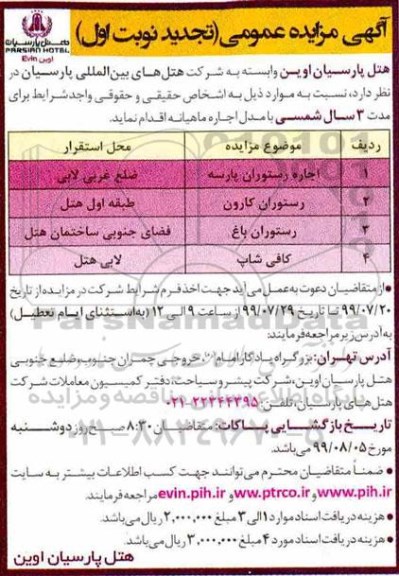 آگهی مزایده عمومی (تجدید نوبت اول)
هتل پارسیان
PARSIAN HOTEL
اوین Evin
هتل پارسیان اوین وابسته به شرکت هتل‌های بین‌المللی پارسیان در
نظر دارد، نسبت به موارد ذیل به اشخاص حقیقی و حقوقی واجد شرایط برای
مدت ۳ سال شمسی با مدل اجاره ماهیانه اقدام نماید.
ردیف موضوع مزایده محل استقرار
۱ اجاره رستوران پارسه ضلع غربی لابی
۲ رستوران کارون طبقه اول هتل
۳ رستوران باغ فضای جنوبی ساختمان هتل
۴ کافی شاپ لابی هتل
● از متقاضیان دعوت به عمل می‌آید جهت اخذ فرم شرایط شرکت در مزایده از تاریخ
۹۹/۰۷/۲۰ تا تاریخ ۹۹/۰۷/۲۹ از ساعت ۹ الی ۱۲ (به استثنای ایام تعطیل)
به آدرس زیر مراجعه فرمایند:
آدرس تهران: بزرگراه یادگار امام، خروجی چمران جنوب، ضلع جنوبی
هتل پارسیان اوین، شرکت پیشرو سیاحت، دفتر کمیسیون معاملات شرکت
هتل‌های پارسیان، تلفن: ۲۲۳۴۴۳۹۵-۰۲۱
تاریخ بازگشایی پاکات: متقاضیان ۸:۳۰ صبح روز دوشنبه
مورخ ۹۹/۰۸/۰۵ می‌باشد.
● ضمناً متقاضیان محترم می‌توانند جهت کسب اطلاعات بیشتر به سایت
www.pih.ir و www.ptrco.ir و evin.pih.ir مراجعه فرمایند.
● هزینه دریافت اسناد موارد ۱ الی ۳ مبلغ ۲,۰۰۰,۰۰۰ ریال می‌باشد.
● هزینه دریافت اسناد مورد ۴ مبلغ ۳,۰۰۰,۰۰۰ ریال می‌باشد.
هتل پارسیان اوین